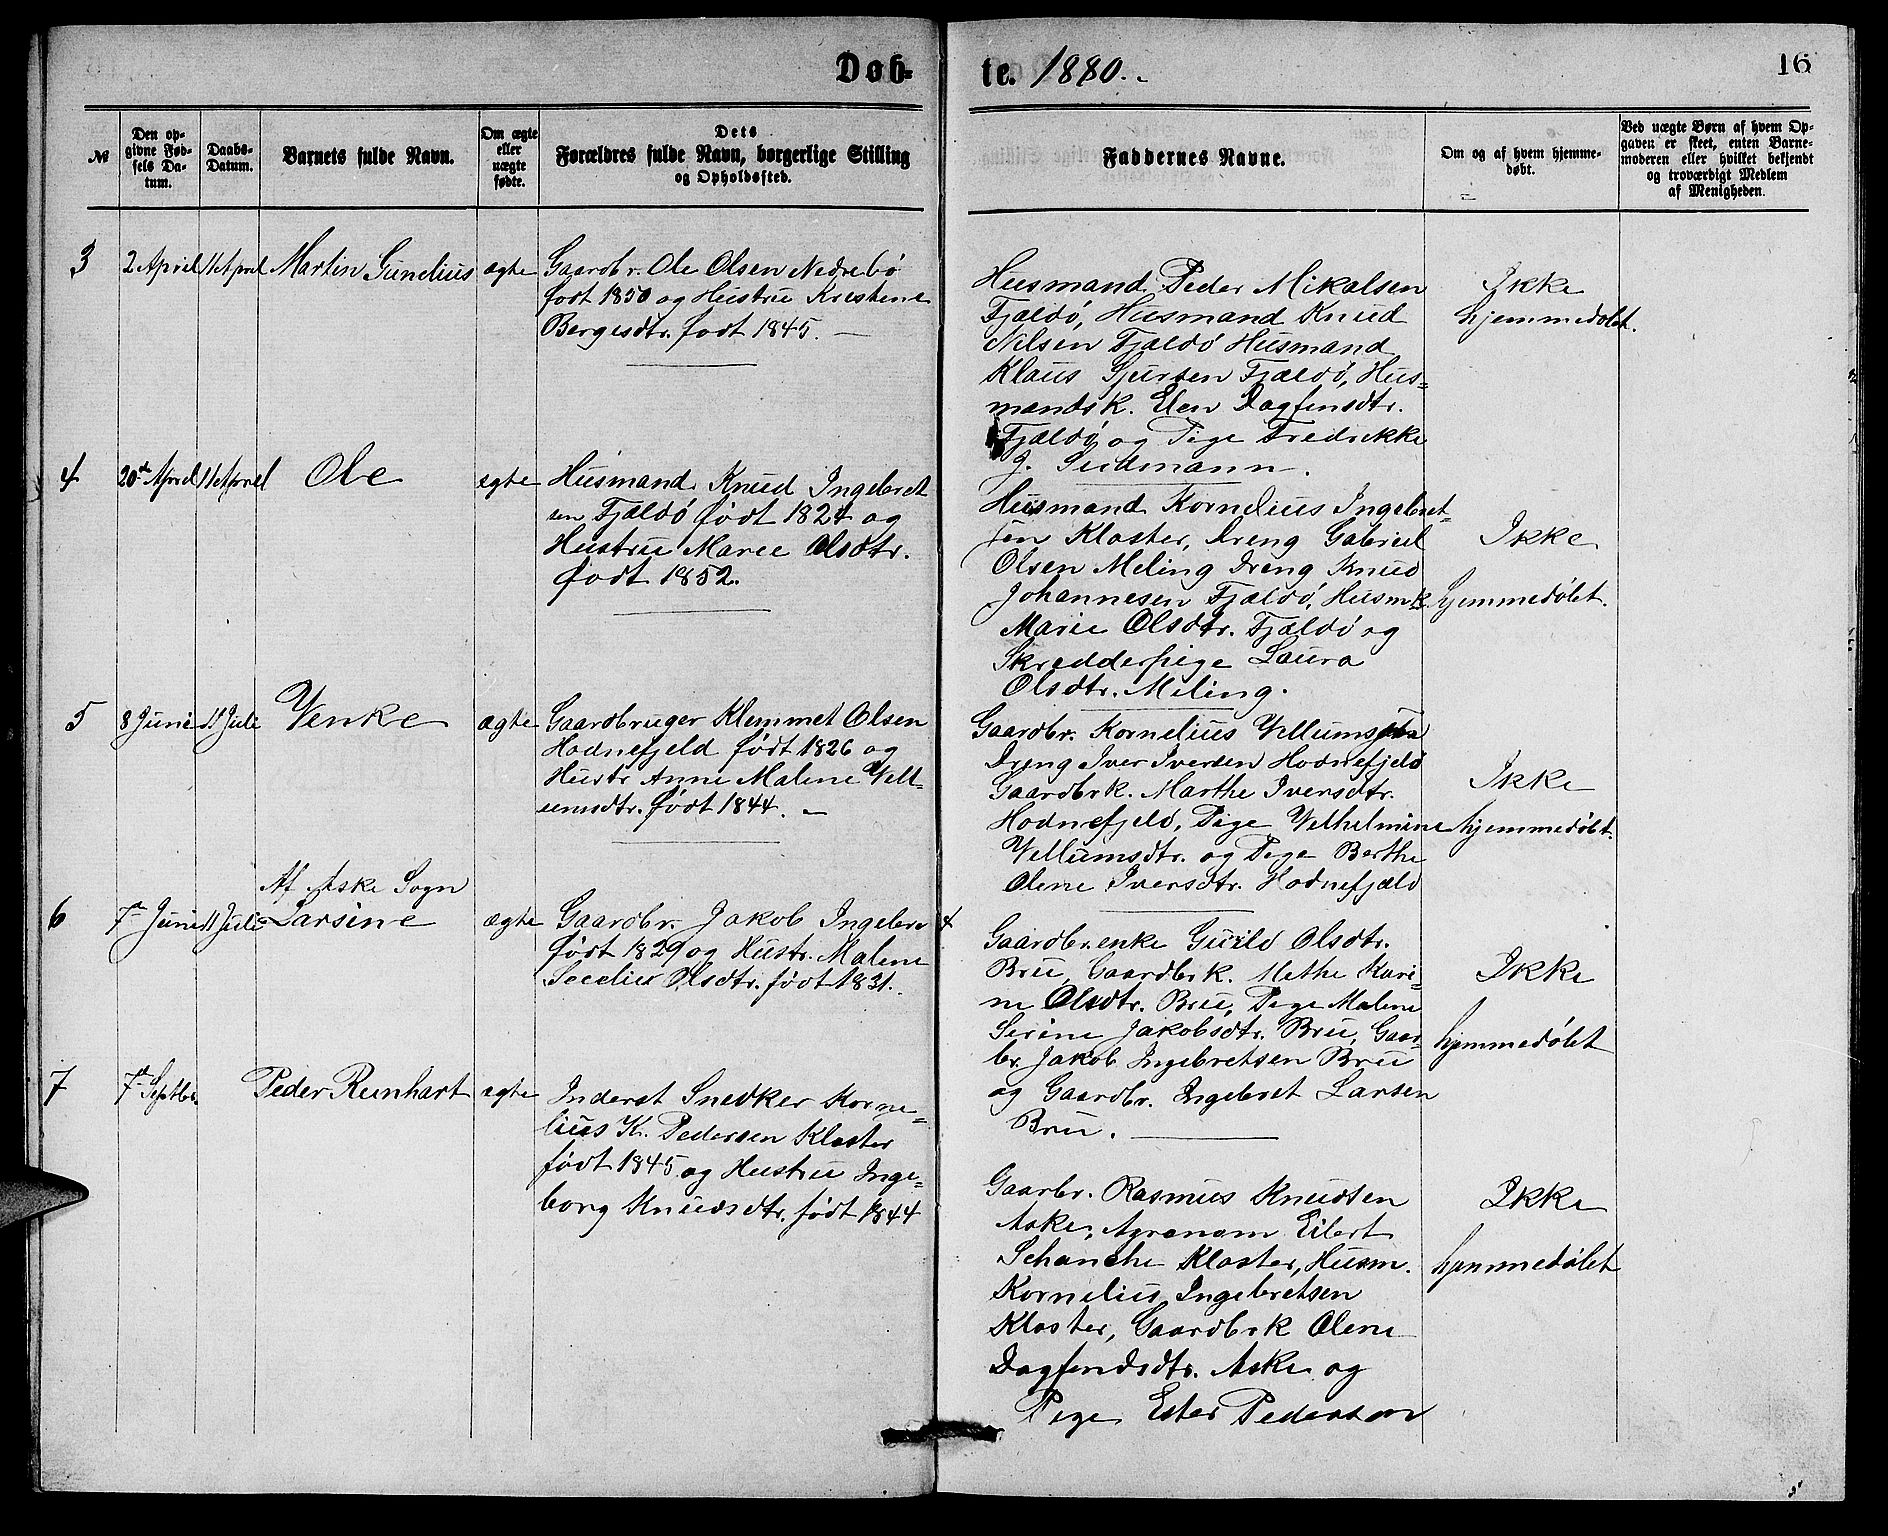 Døb-
te. 1880.
16
№
Den op-
givne Fød-
sels Da-
tum.
Daabs-
Datum.
Barnets fulde Navn.
Om ægte
eller
uægte
fødte.
Dets
Forældres fulde Navn, borgerlige Stilling
og Opholdssted.
Faddernes Navne.
Om og af hvem hjemme-
døbt.
Ved uægte Børn af hvem Op-
gaven er skeet, enten Barne-
moderen eller hvilket bekjendt
og troværdigt Medlem
af Menigheden.
3
2 April
11 April
Martin Gunelius
ægte
Gaardbr. Ole Olsen Nedrebö
født 1850 og Hustru Kristene
Bergesdtr. født 1845. —
Husmand Peder Mikalsen
Fjældö, Husmand Knud
Nilsen Fjældö Husmand
Klaus Sjursen Fjældö, Hus=
mandsk. Elen Dagfinsdtr.
Fjældö og Pige Fredrikke
J. Sudmann.
Ikke
hjemmedøbt.
4
20de April
11 April
Ole
egte
Husmand Knud Ingebret
sen Fjældö født 1824 og
Hustru Maree Olsdtr.
født 1852.
Husmand Kornelius Ingebret-
sen Kloster, Dreng Gabriel
Olsen Meling Dreng Knud
Johannesen Fjældö, Husmk
Marie Olsdtr. Fjældö og
Skredderpige Laura
Olsdtr. Meling.
Ikke
hjemmedøbt.
5
8 Juni
11 Juli
Venke
ægte
Gaardbruger Klemmet Olsen
Hodnefjeld født 1826 og
Hustr Anne Malene Vell-
umsdtr. født 1844. —
Gaardbr. Kornelius Vellumsen
Dreng Iver Iversen Hodnefjeld
Gaardbrk. Marthe Iversdtr.
Hodnefjeld, Pige Velhelmine
Vellumsdtr. og Pige Berthe
Olene Iversdtr. Hodnefjeld
Ikke
hjemmedøbt.
6
7de Juni
11 Juli
Af Aske Sogn
Larsine
ægte
Gaardbr. Jakob Ingebr
født 1829 og Hustr. Malene
Secelia Olsdtr. født 1831.
Gaardbr.enke Gurild Olsdtr.
Bru, Gaardbrk. Methe Kari-
ne Olsdtr. Bru, Pige Malene
Serine Jakobsdtr. Bru, Gaar-
br. Jakob Ingebretsen Bru
og Gaardbr. Ingebret Larsen
Bru.
Ikke
hjemmedøbt
7
7de Septbr.
Peder Reinhart
egte
Inderst Snedker Korne=
lius K. Pedersen Kloster
født 1845 og Hustru Inge=
borg Knudsdtr. født 1844
Gaarbr. Rasmus Knudsen
Aske, Agronom Eilert
Schanche Kloster, Husm.
Kornelius Ingebretsen
Kloster, Gaardbrk Olene
Dagfendsdtr. Aske og
Pige Ester Pedersen
Ikke
hjemmedøbt